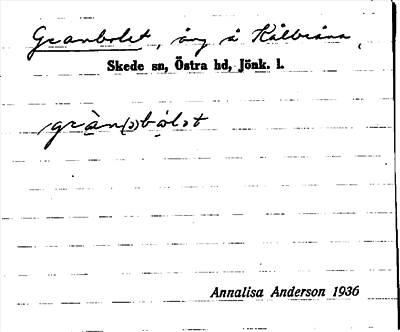 Granbolet, äng å Kålbråna,
Skede sn, Östra hd, Jönk. l.
gràn(ə)bólət
Annalisa Anderson 1936